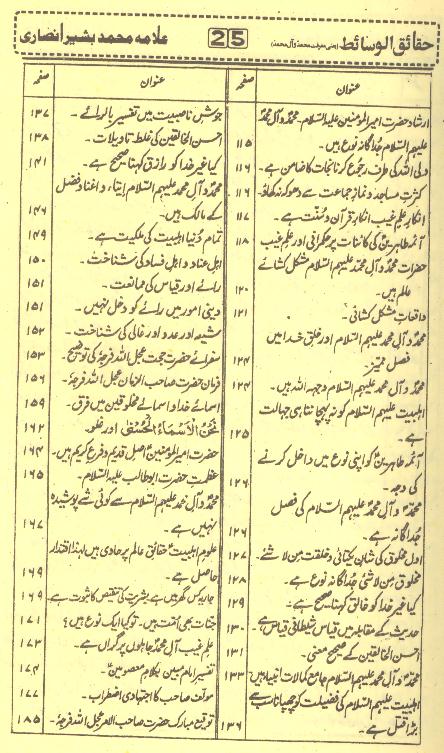 حقائق الوسائط (یعنی معرفت محمدؐ و آل محمدؐ)
25
علامہ محمد بشیر انصاری
عنوان
صفحہ
ارشاد حضرت امیر المومنین علیہ السلام۔ محمدؐ و آل محمدؐ
علیہم السلام جداگانہ نوع ہیں۔ ۱۱۵
ولی اللہ کی طرف رجوع کرنا نجات کا ضامن ہے۔ ۱۱۶
کثرتِ مساجد و نمازِ جماعت سے دھوکہ نہ کھاؤ۔ ۱۱۶
انکارِ علم غیب انکارِ قرآن و سنت ہے۔ ۱۱۷
آئمہ طاہرینؑ کی کائنات پر حکمرانی اور علم غیب ۱۱۸
حضرات محمدؐ و آل محمدؐ علیہم السلام مشکل کشائے
عالم ہیں۔ ۱۲۰
واقعاتِ مشکل کشائی۔ ۱۲۱
محمدؐ و آل محمدؐ علیہم السلام اور خلق خدا میں
فصل ممیّز۔ ۱۲۴
محمدؐ و آل محمدؐ علیہم السلام وجہہ اللہ ہیں۔ ۱۲۴
اہلبیت علیہم السلام کو نہ پہچاننا ہی جہالت
ہے۔ ۱۲۵
آئمہ طاہرینؑ کو اپنی نوع میں داخل کرنے
کی وجہ۔ ۱۲۶
محمدؐ و آل محمدؐ علیہم السلام کی فصل
جداگانہ ہے۔ ۱۲۶
اول مخلوق کی شانِ یکتائی و خلقت من لاشئے۔ ۱۲۷
مخلوق من لاشئی جداگانہ نوع ہے۔ ۱۲۸
کیا غیر خدا کو خالق کہنا صحیح ہے۔ ۱۲۹
حدیث کے مقابلہ میں قیاس شیطانی قیاس ہے۔ ۱۳۰
احسن الخالقین کے صحیح معنی۔ ۱۳۱
محمدؐ و آل محمدؐ علیہم السلام جامع کمالات انبیاء ہیں ۱۳۳
اہلبیت علیہم السلام کی فضیلت کو چھپانا سب سے
بڑا قتل ہے۔ ۱۳۶
عنوان
صفحہ
جوشِ ناصبیت میں تفسیر بالرائے۔ ۱۳۷
احسن الخالقین کی غلط تاویلات۔ ۱۳۸
کیا غیر خدا کو رازق کہنا صحیح ہے۔ ۱۴۱
محمدؐ و آل محمدؐ علیہم السلام ایتاء و اغناء و فضل
کے مالک ہیں۔ ۱۴۶
تمام دنیا اہلبیت کی ملکیت ہے۔ ۱۴۹
اہل عناد و اہل فساد کی شناخت۔ ۱۵۰
رائے اور قیاس کی ممانعت۔ ۱۵۱
دینی امور میں رائے کو دخل نہیں۔ ۱۵۱
شیعہ اور عدو اور غالی کی شناخت۔ ۱۵۲
سفرائے حضرت حجت عجل اللہ فرجہٗ کی توضیح۔ ۱۵۳
فرمان حضرت صاحب الزمان عجل اللہ فرجہٗ۔ ۱۵۶
اسمائے خدا و اسمائے مخلوقین میں فرق۔ ۱۵۹
نَحْنُ الْاَسْمَاءُ الْحُسْنٰی اور غلو۔ ۱۶۲
حضرت امیر المومنینؑ اصل قدیم و فرع کریم ہیں۔ ۱۶۴
عظمتِ حضرت ابو طالب علیہ السلام۔ ۱۶۵
محمدؐ و آل محمدؐ علیہم السلام سے کوئی شے پوشیدہ
نہیں ہے۔ ۱۶۷
علومِ اہلبیتؑ حقائق عالم پر حاوی ہیں لہذا اقتدار
حاصل ہے۔ ۱۶۹
بشریت کی تنقیص کا ثبوت ہے ۱۶۹
جنات بھی اُمت ہیں۔ تو کیا ایک نوع ہیں؟ ۱۷۱
علم غیب آل محمدؐ جاہلوں پر گراں ہے۔ ۱۷۳
تفسیر امام مبین بکلام معصومینؑ۔ ۱۷۴
مولف صاحب کا اجتہادی اضطراب۔ ۱۷۷
توقیع مبارک حضرت صاحب الامر عجل اللہ فرجہٗ۔ ۱۸۵